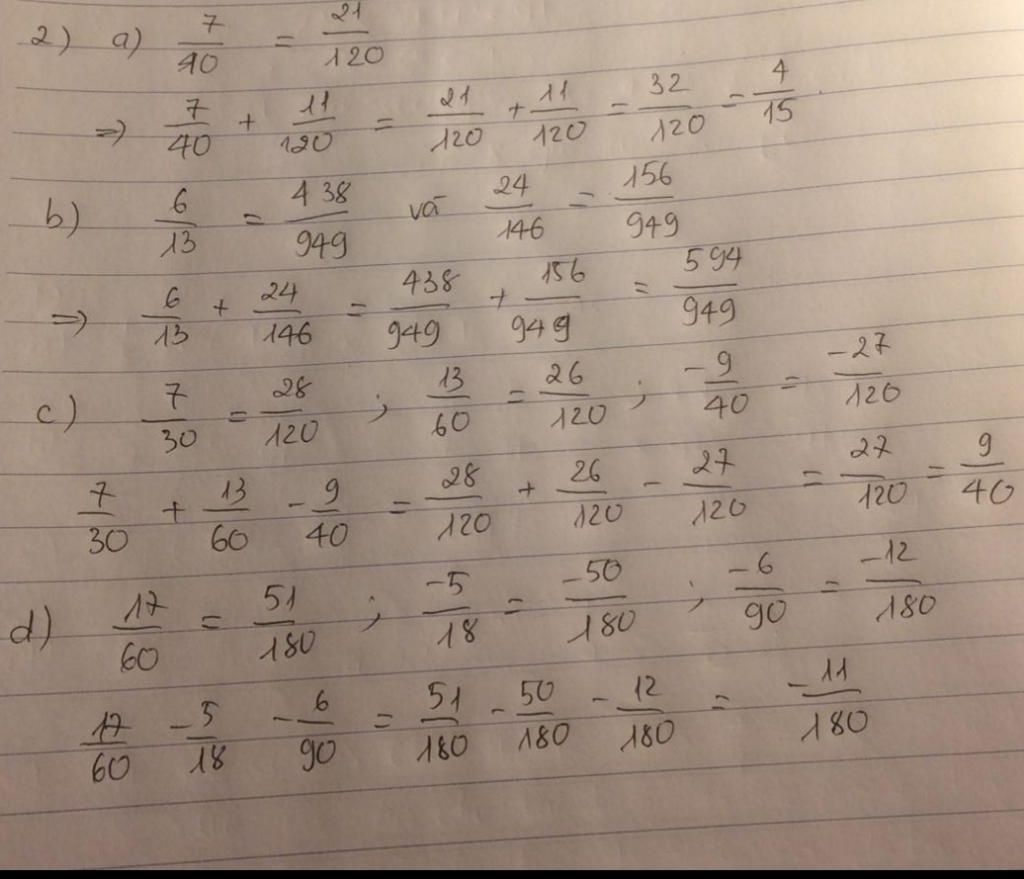 2) a) 7/40 = 21/120
=> 7/40 + 11/120 = 21/120 + 11/120 = 32/120 = 4/15
b) 6/13 = 438/949 vã 24/146 = 156/949
=> 6/13 + 24/146 = 438/949 + 156/949 = 594/949
c) 7/30 = 28/120 ; 13/60 = 26/120 ; -9/40 = -27/120
7/30 + 13/60 - 9/40 = 28/120 + 26/120 - 27/120 = 27/120 = 9/40
d) 17/60 = 51/180 ; -5/18 = -50/180 ; -6/90 = -12/180
17/60 - 5/18 - 6/90 = 51/180 - 50/180 - 12/180 = -11/180